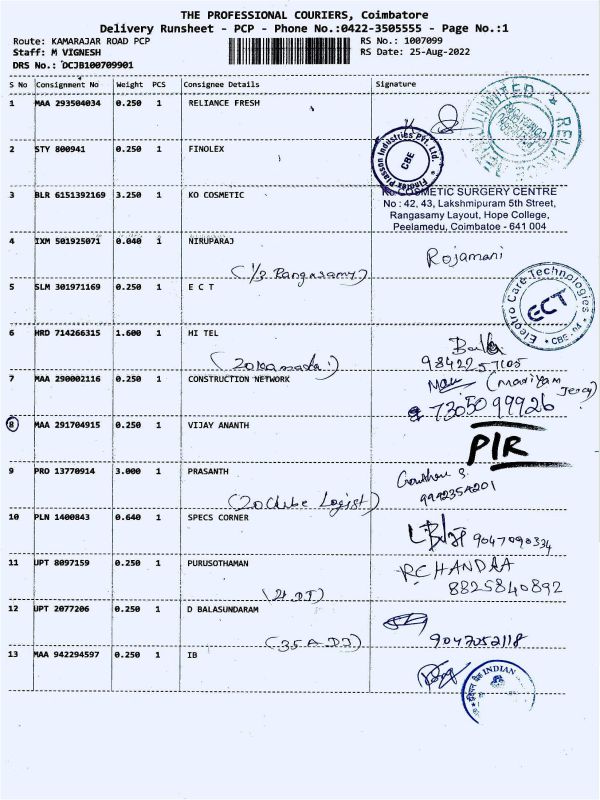 THE PROFESSIONAL COURIERS, Coimbatore
Delivery Runsheet - PCP - Phone No.:0422-3505555 - Page No.:1
Route: KAMARAJAR ROAD PCP RS No.: 1007099
Staff: M VIGNESH RS Date: 25-Aug-2022
DRS No.: DCJB100709901
S No Consignment No Weight PCS Consignee Details Signature
1 MAA 293504034 0.250 1 RELIANCE FRESH
RELIANCE RETAIL LIMITED
2 STY 800941 0.250 1 FINOLEX
Finotex Plasson Industries Pvt. Ltd. CBE
3 BLR 6151392169 3.250 1 KO COSMETIC
Ko COSMETIC SURGERY CENTRE
No : 42, 43, Lakshmipuram 5th Street,
Rangasamy Layout, Hope College,
Peelamedu, Coimbatoe - 641 004
4 IXM 501925071 0.040 1 NIRUPARAJ
Rojamani
(1/3 Rangasamy)
5 SLM 301971169 0.250 1 E C T
Electro Care Technologies ECT CBE - 04
6 HRD 714266315 1.600 1 HI TEL
7 MAA 290002116 0.250 1 CONSTRUCTION NETWORK
(Mariyam
7305099926
8 MAA 291704915 0.250 1 VIJAY ANANTH
P/R
9 PRO 13770914 3.000 1 PRASANTH
9942354201
10 PLN 1400843 0.640 1 SPECS CORNER
9047090334
11 UPT 8097159 0.250 1 PURUSOTHAMAN
RCHANDAA
8825840892
12 UPT 2077206 0.250 1 D BALASUNDARAM
9047052118
13 MAA 942294597 0.250 1 IB
INDIAN